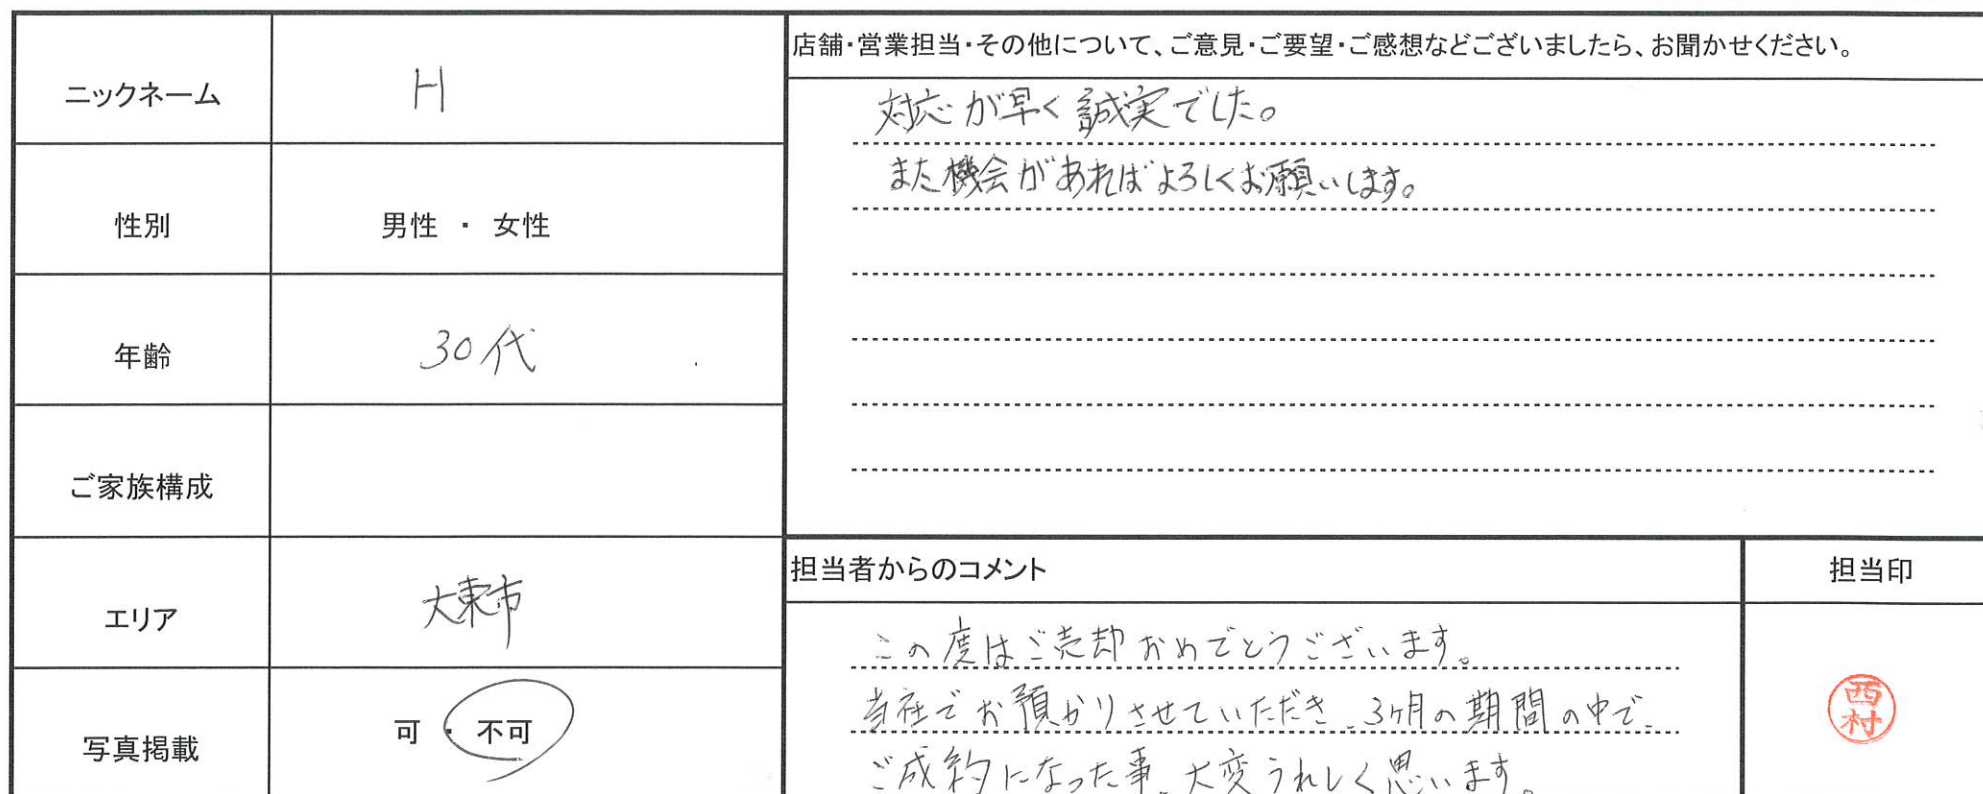 ニックネーム H
性別 男性 ・ 女性
年齢 30代
ご家族構成
エリア 大東市
写真掲載 可 ・ 不可
店舗・営業担当・その他について、ご意見・ご要望・ご感想などございましたら、お聞かせください。
対応が早く誠実でした。
また機会があればよろしくお願いします。
担当者からのコメント
この度はご売却おめでとうございます。
当社でお預かりさせていただき、3ヶ月の期間の中で、
ご成約になった事、大変うれしく思います。
担当印
西村